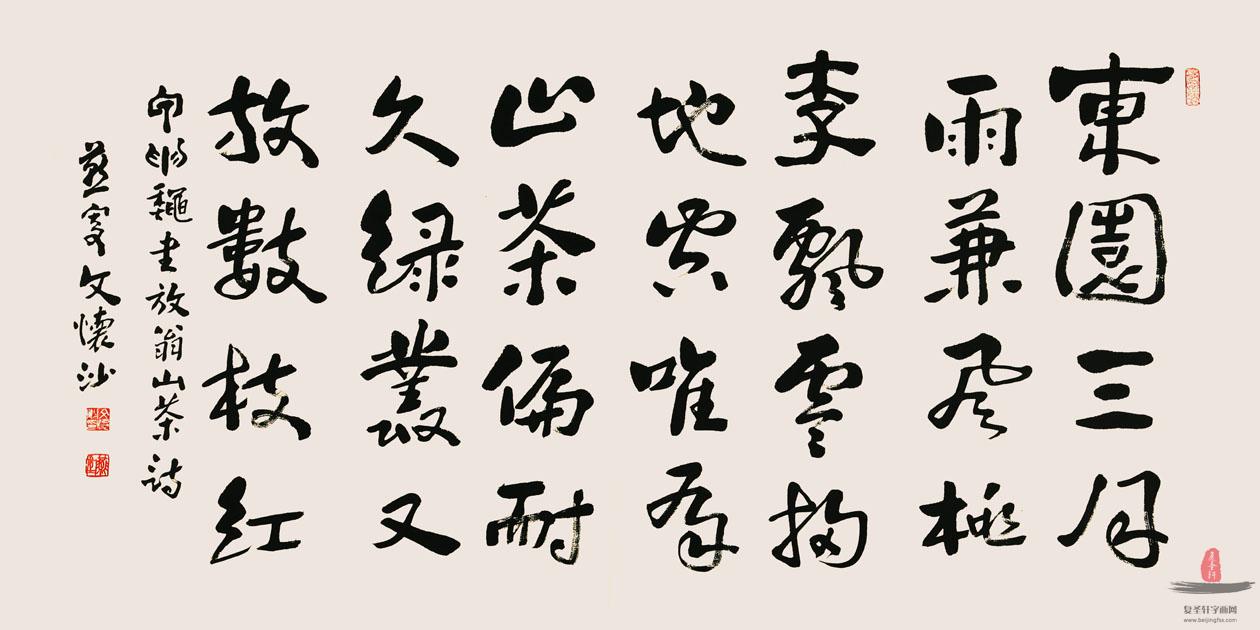 東園三月
雨兼風桃
李飄零掃
地空唯有
山茶偏耐
久綠叢又
放數枝紅
龝書放翁山茶詩
燕叟文懷沙
复圣轩字画网
www.beijingfsx.com